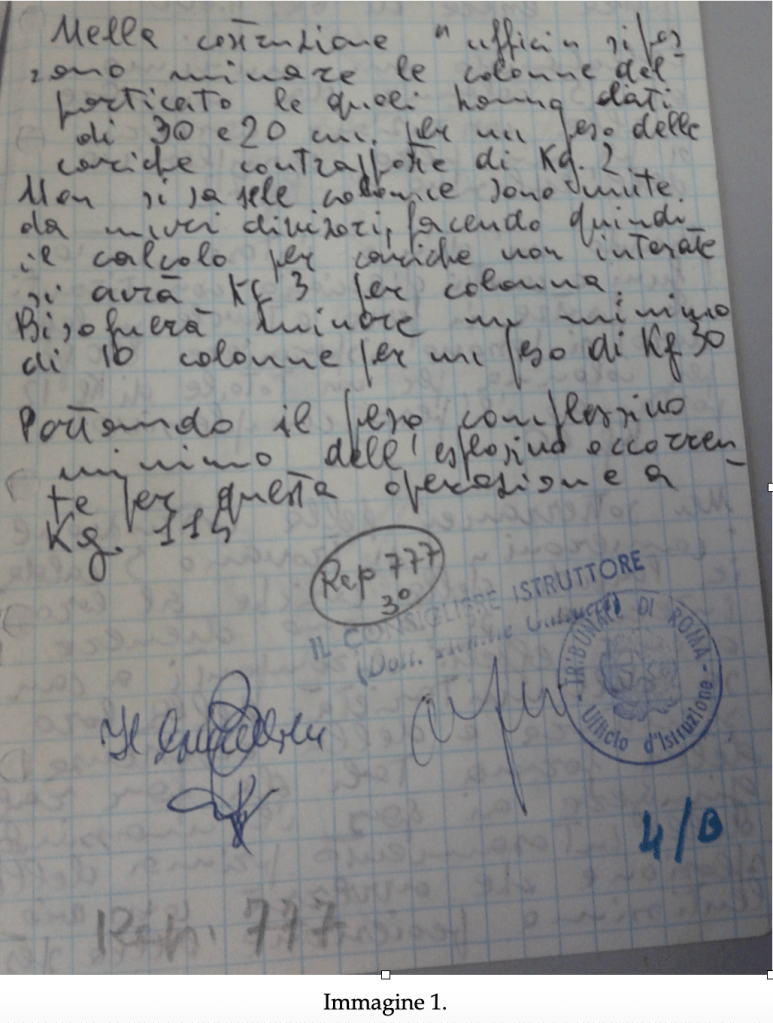 Nella costruzione "uffici" si pos-
sono minare le colonne del
porticato le quali hanno dati
di 30 e 20 cm. per un peso delle
cariche contrapposte di Kg. 2
Non si sa se le colonne sono unite
da muri divisori, facendo quindi
il calcolo per cariche non interate
si avrà Kg 3 per colonna.
Bisognerà minare un minimo
di 10 colonne per un peso di Kg 30
Portando il peso complessivo
minimo dell'esplosivo occorren-
te per questa operazione a
Kg. 114
Rep 777
3°
IL CONSIGLIERE ISTRUTTORE
(Dott.
TRIBUNALE DI ROMA
Ufficio d'Istruzione
4/B
Rep. 777
Immagine 1.